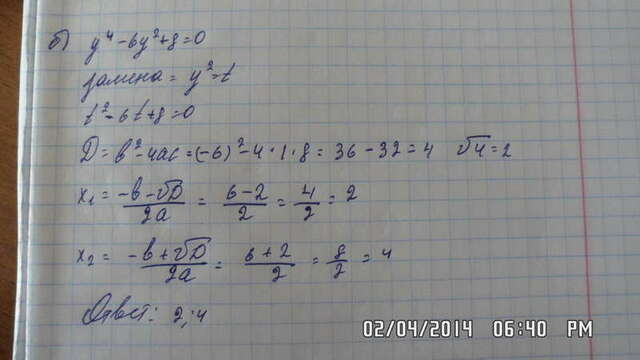 б) y⁴-6y²+8=0
замена = y²=t
t²-6t+8=0
D=b²-4ac=(-6)²-4·1·8=36-32=4 √4=2
x₁=(-b-√D)/2a=(6-2)/2=4/2=2
x₂=(-b+√D)/2a=(6+2)/2=8/2=4
Ответ: 2; 4
02/04/2014 06:40 PM